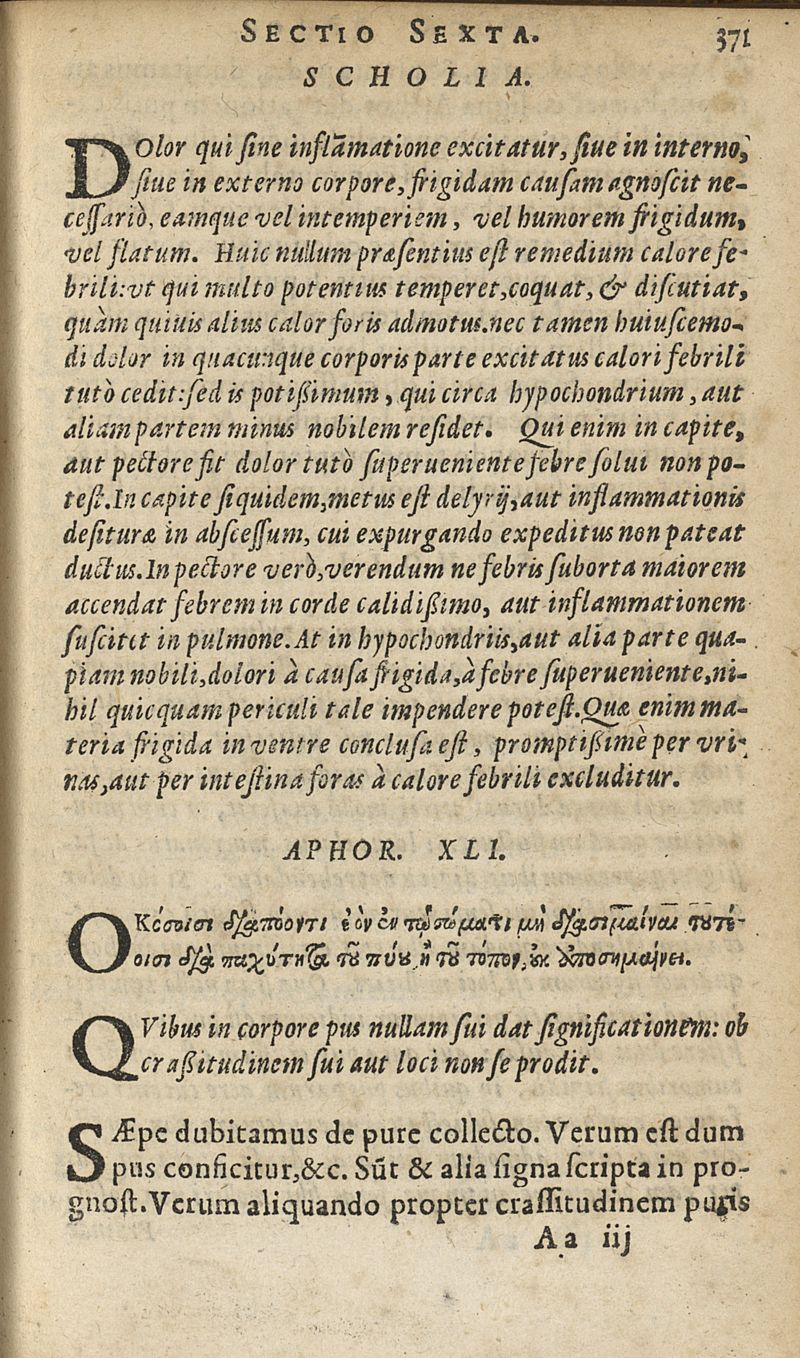 SECTIO SEXTA. 371
SCHOLIA.
DOlor qui sine inflãmatione excitatur, siue in interno,
siue in externo corpore, frigidam causam agnoscit ne-
cessariò, eamque vel intemperiem, vel humorem frigidum,
vel flatum. Huic nullum præsentius est remedium calore fe-
brili:vt qui multo potentius temperet,coquat, & discutiat,
quàm quiuis alius calor foris admotus.nec tamen huiuscemo-
di dolor in quacunque corporis parte excitatus calori febrili
tutò cedit:sed is potißimum, qui circa hypochondrium, aut
aliam partem minus nobilem residet. Qui enim in capite,
aut pectore fit dolor tutò superueniente febre solui non po-
test.In capite siquidem,metus est delyrij,aut inflammationis
desituræ in abscessum, cui expurgando expeditus non pateat
ductus.In pectore verò,verendum ne febris suborta maiorem
accendat febrem in corde calidißimo, aut inflammationem
suscitet in pulmone.At in hypochondriis,aut alia parte qua-
piam nobili,dolori à causa frigida,à febre superueniente,ni-
hil quicquam periculi tale impendere potest.Quæ enim ma-
teria frigida in ventre conclusa est, promptißimè per vri-
nas,aut per intestina foras à calore febrili excluditur.
APHOR. XLI.
ΟΚόσοισι διάπυον τι ἐὸν ἐν τῷ σώματι μὴ διασημαίνει τουτέ-
οισι διὰ παχύτητα τοῦ πύου ἢ τοῦ τόπου, οὐκ ἀποσημαίνει.
QVibus in corpore pus nullam sui dat significationem: ob
craßitudinem sui aut loci non se prodit.
SÆpe dubitamus de pure collecto. Verum est dum
pus conficitur,&c. Sũt & alia signa scripta in pro-
gnost. Verum aliquando propter crassitudinem puris
Aa iij